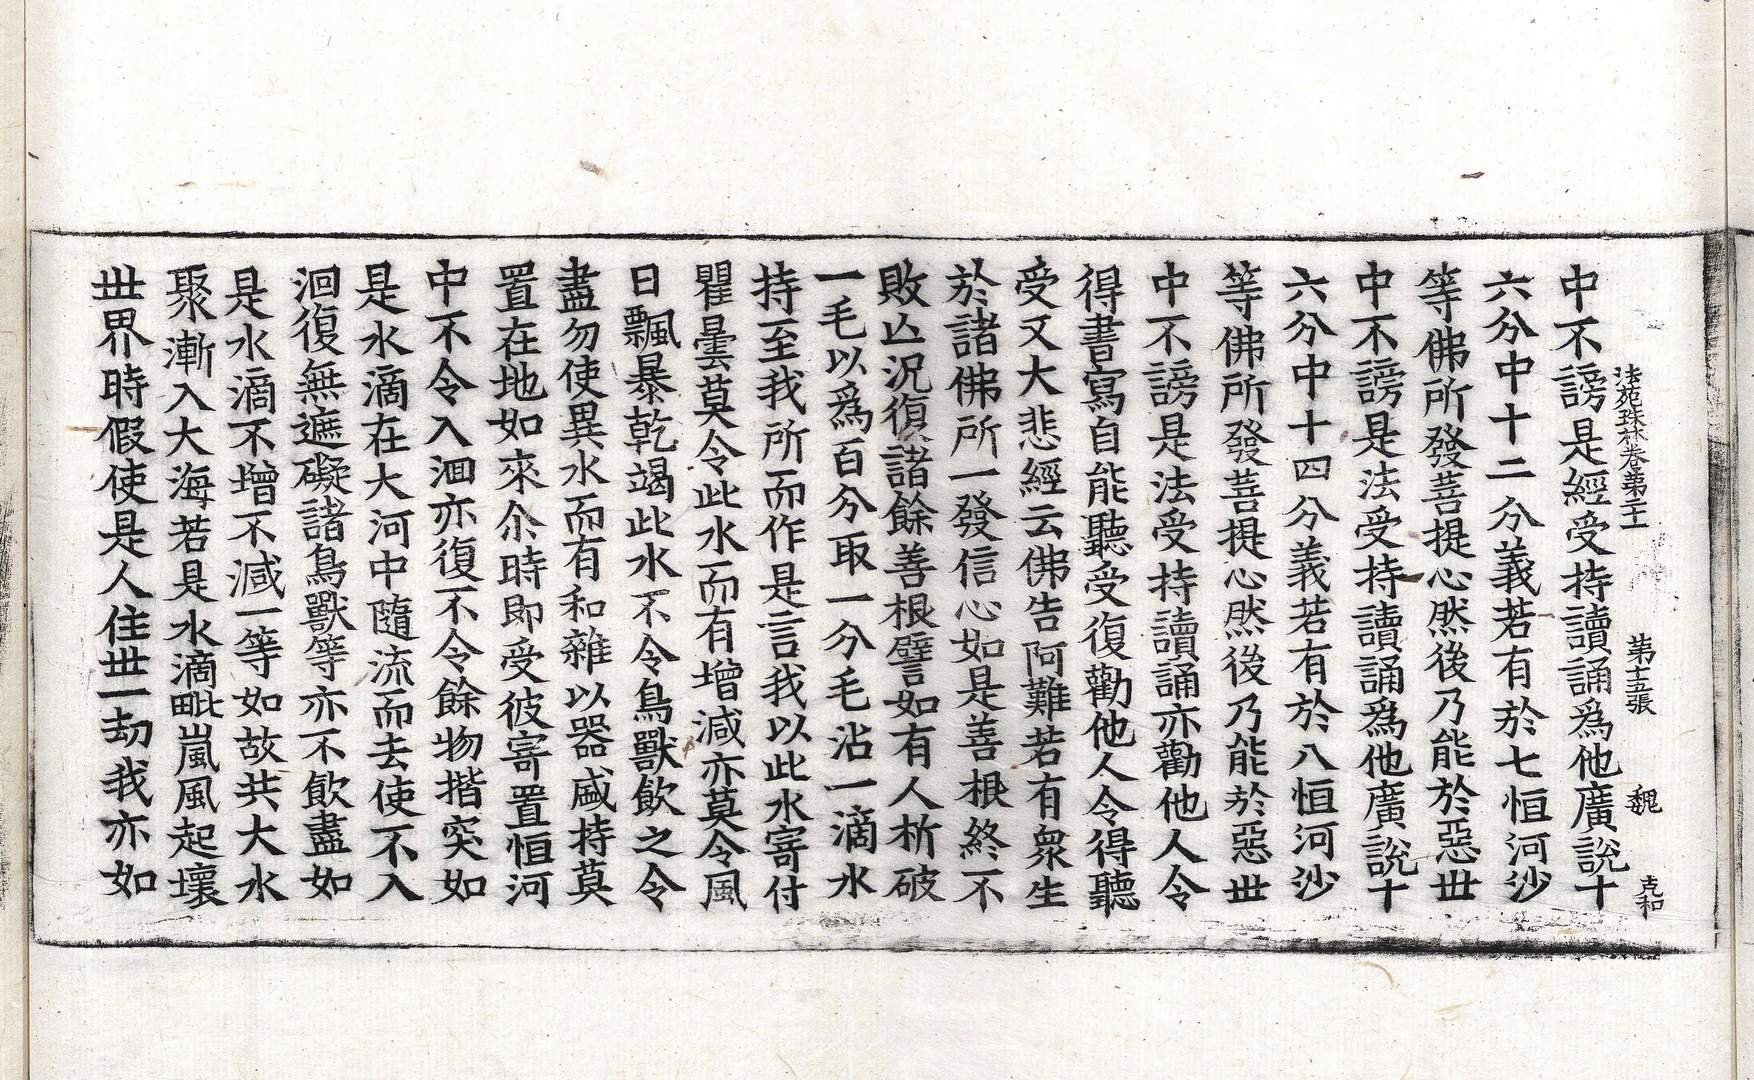 法苑珠林卷第二十一 第十五張 魏 克和
中不謗是經受持讀誦爲他廣說十
六分中十二分義若有於七恒河沙
等佛所發菩提心然後乃能於惡世
中不謗是法受持讀誦爲他廣說十
六分中十四分義若有於八恒河沙
等佛所發菩提心然後乃能於惡世
中不謗是法受持讀誦亦勸他人令
得書寫自能聽受復勸他人令得聽
受又大悲經云佛告阿難若有衆生
於諸佛所一發信心如是善根終不
敗亾況復諸餘善根譬如有人析破
一毛以爲百分取一分毛沾一滴水
持至我所而作是言我以此水寄付
瞿曇莫令此水而有增減亦莫令風
日飄暴乾竭此水不令鳥獸飲之令
盡勿使異水而有和雜以器盛持莫
置在地如來尒時即受彼寄置恒河
中不令入洄亦復不令餘物揩突如
是水滴在大河中隨流而去使不入
洄復無遮礙諸鳥獸等亦不飲盡如
是水滴不增不減一等如故共大水
聚漸入大海若是水滴毗嵐風起壞
世界時假使是人住世一劫我亦如